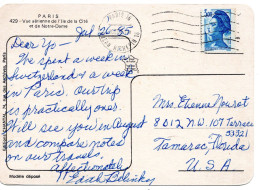 PARIS
429 - Vue aérienne de l'Ile de la Cité
et de Notre-Dame
July 26-85
Dear Yo -
We spent a week in
Switzerland & a week
in Paris. Our trip
is practically over.
Will see you in August
and compare notes
on our travels.
Affectionately
Mrs. Etienne
8012 N.W. 107 Terrace
33321
Tamarac, Florida
U.S.A